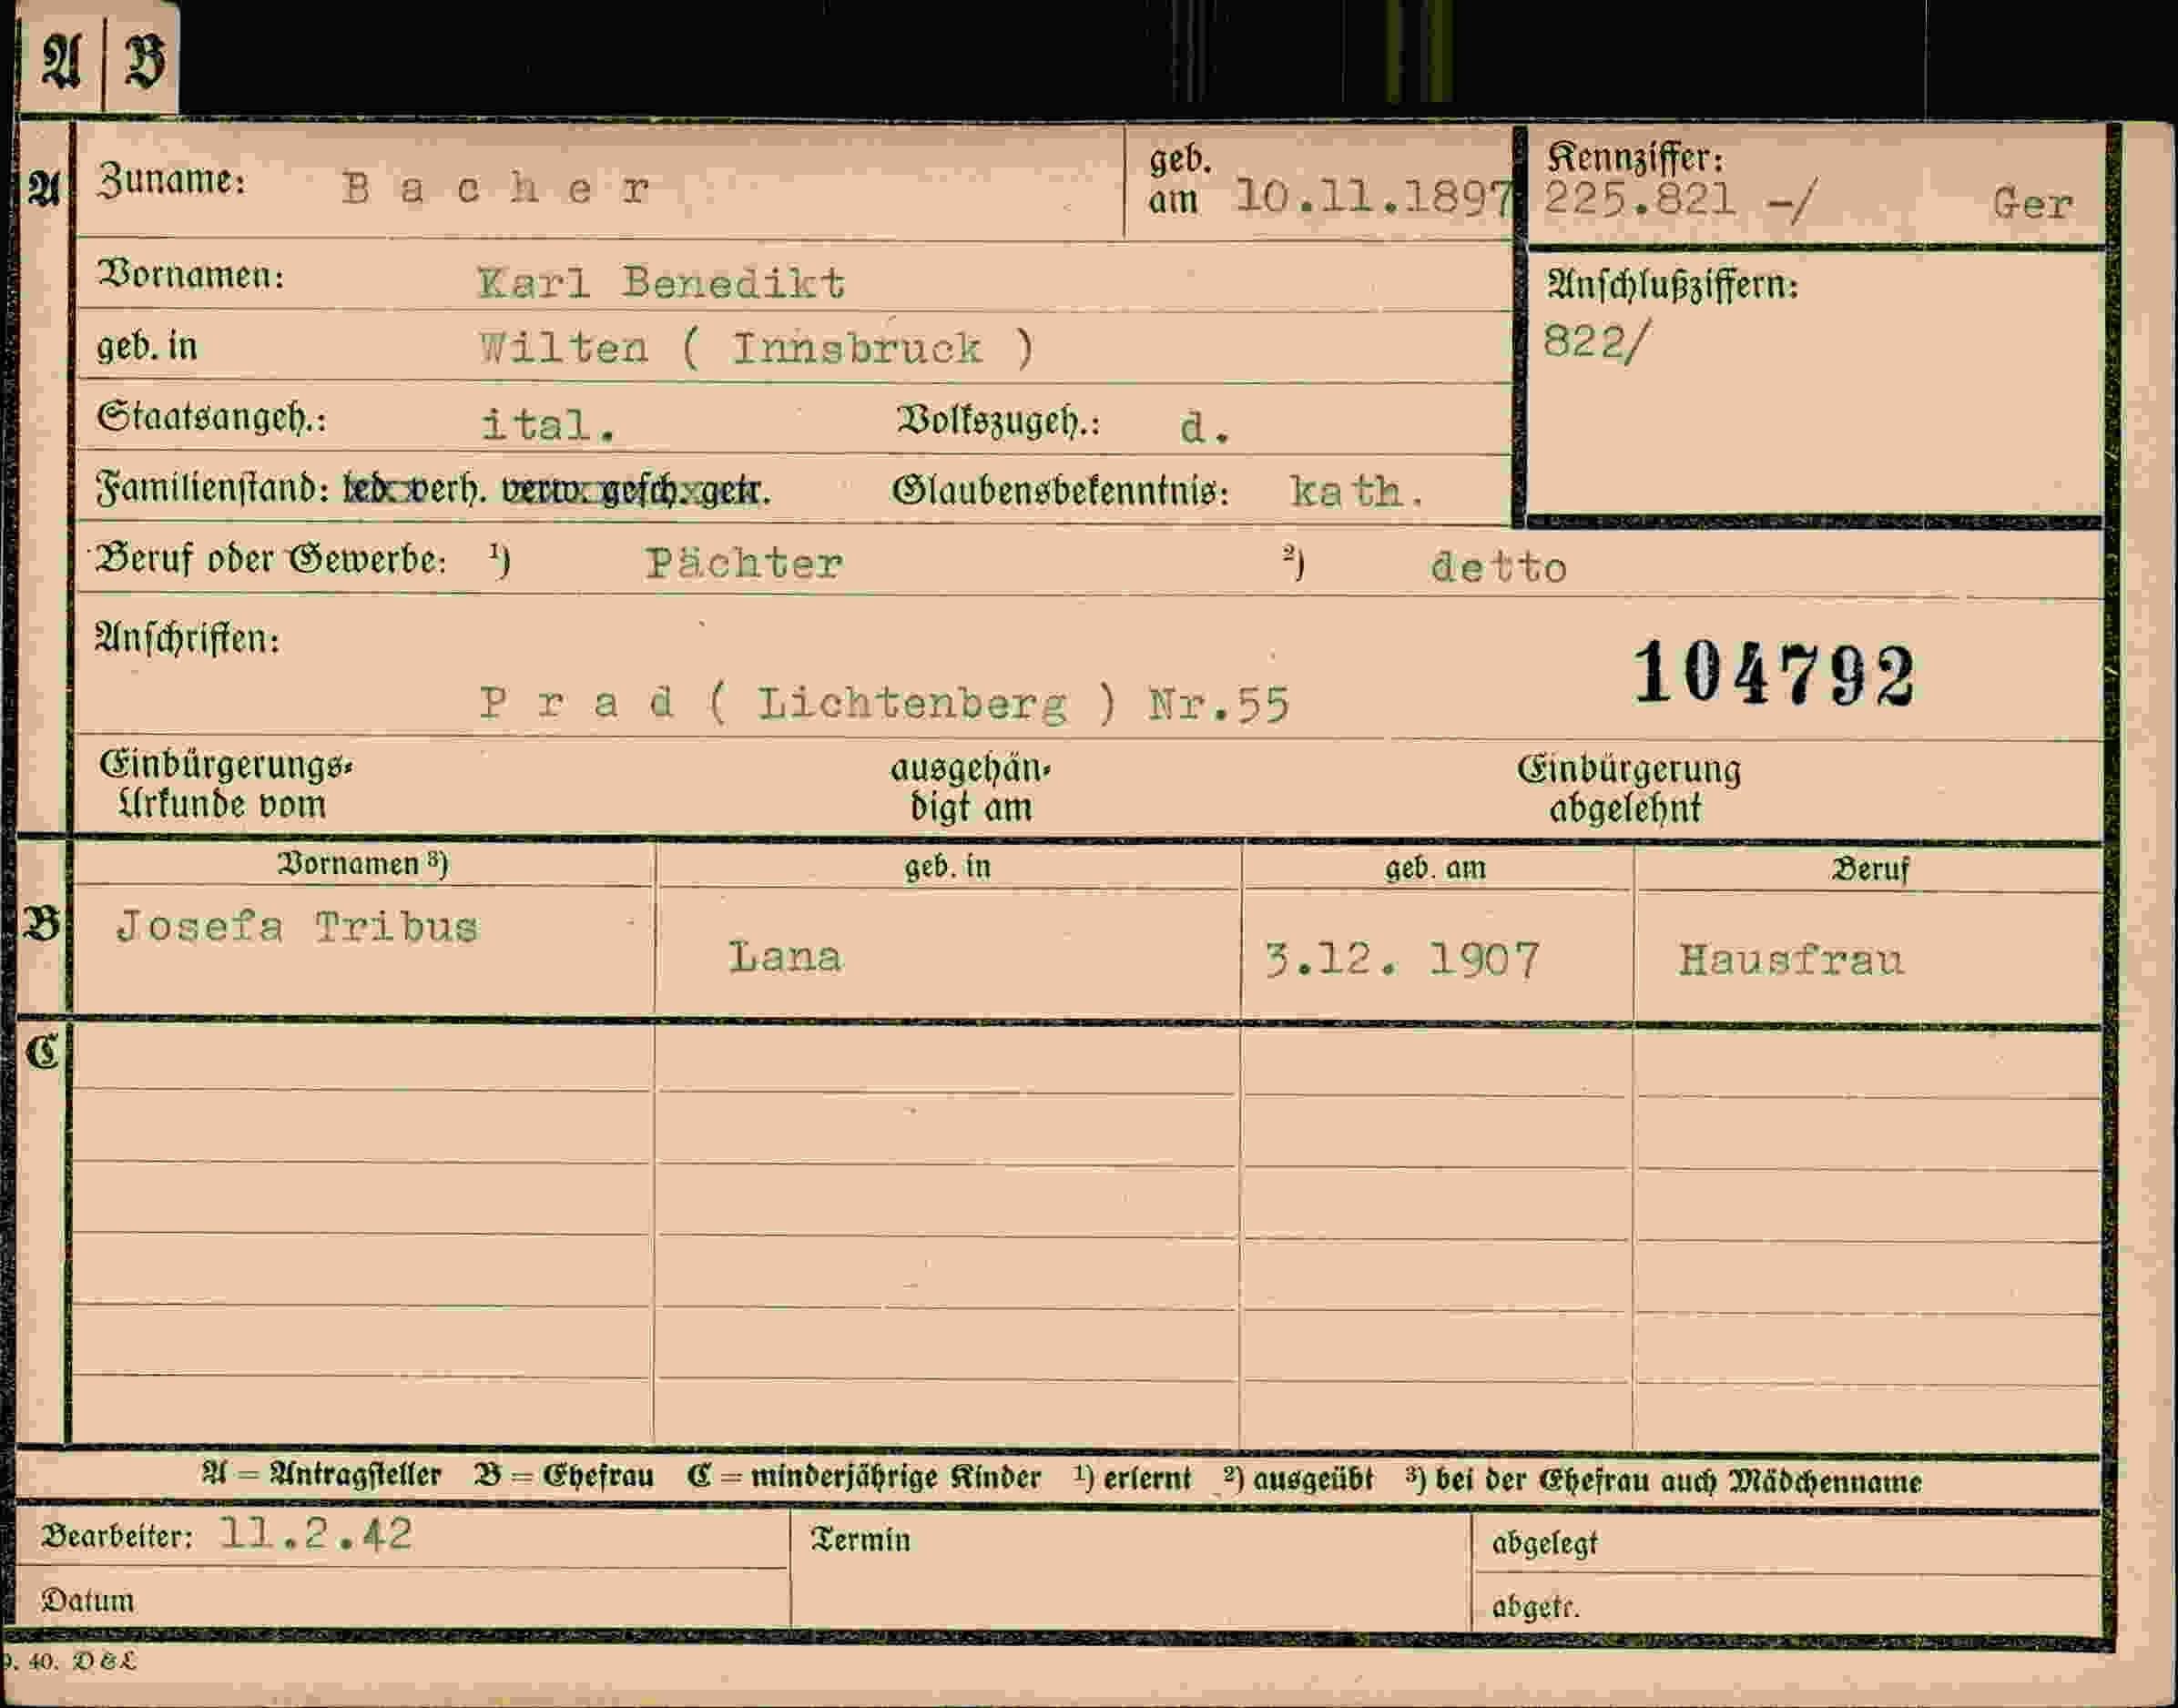 A B
A Zuname: Bacher geb. am 10.11.1897 Kennziffer: 225.821 -/ Ger
Vornamen: Karl Benedikt Anschlußziffern:
geb. in Wilten ( Innsbruck ) 822/
Staatsangeh.: ital. Volkszugeh.: d.
Familienstand: led. verh. verw. gesch. getr. Glaubensbekenntnis: kath.
Beruf oder Gewerbe: ¹) Pächter ²) detto
Anschriften: 104792
Prad ( Lichtenberg ) Nr.55
Einbürgerungs- ausgehän- Einbürgerung
Urkunde vom digt am abgelehnt
Vornamen ³) geb. in geb. am Beruf
B Josefa Tribus Lana 3.12. 1907 Hausfrau
C
A = Antragsteller B = Ehefrau C = minderjährige Kinder ¹) erlernt ²) ausgeübt ³) bei der Ehefrau auch Mädchenname
Bearbeiter: 11.2.42 Termin abgelegt
Datum abgetr.
9. 40. D & L